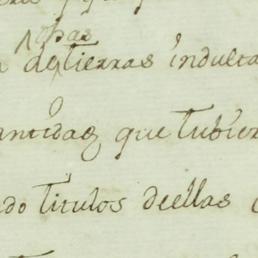 dhas
de tierras indulta
antidad que tubier
ndo titulos deellas